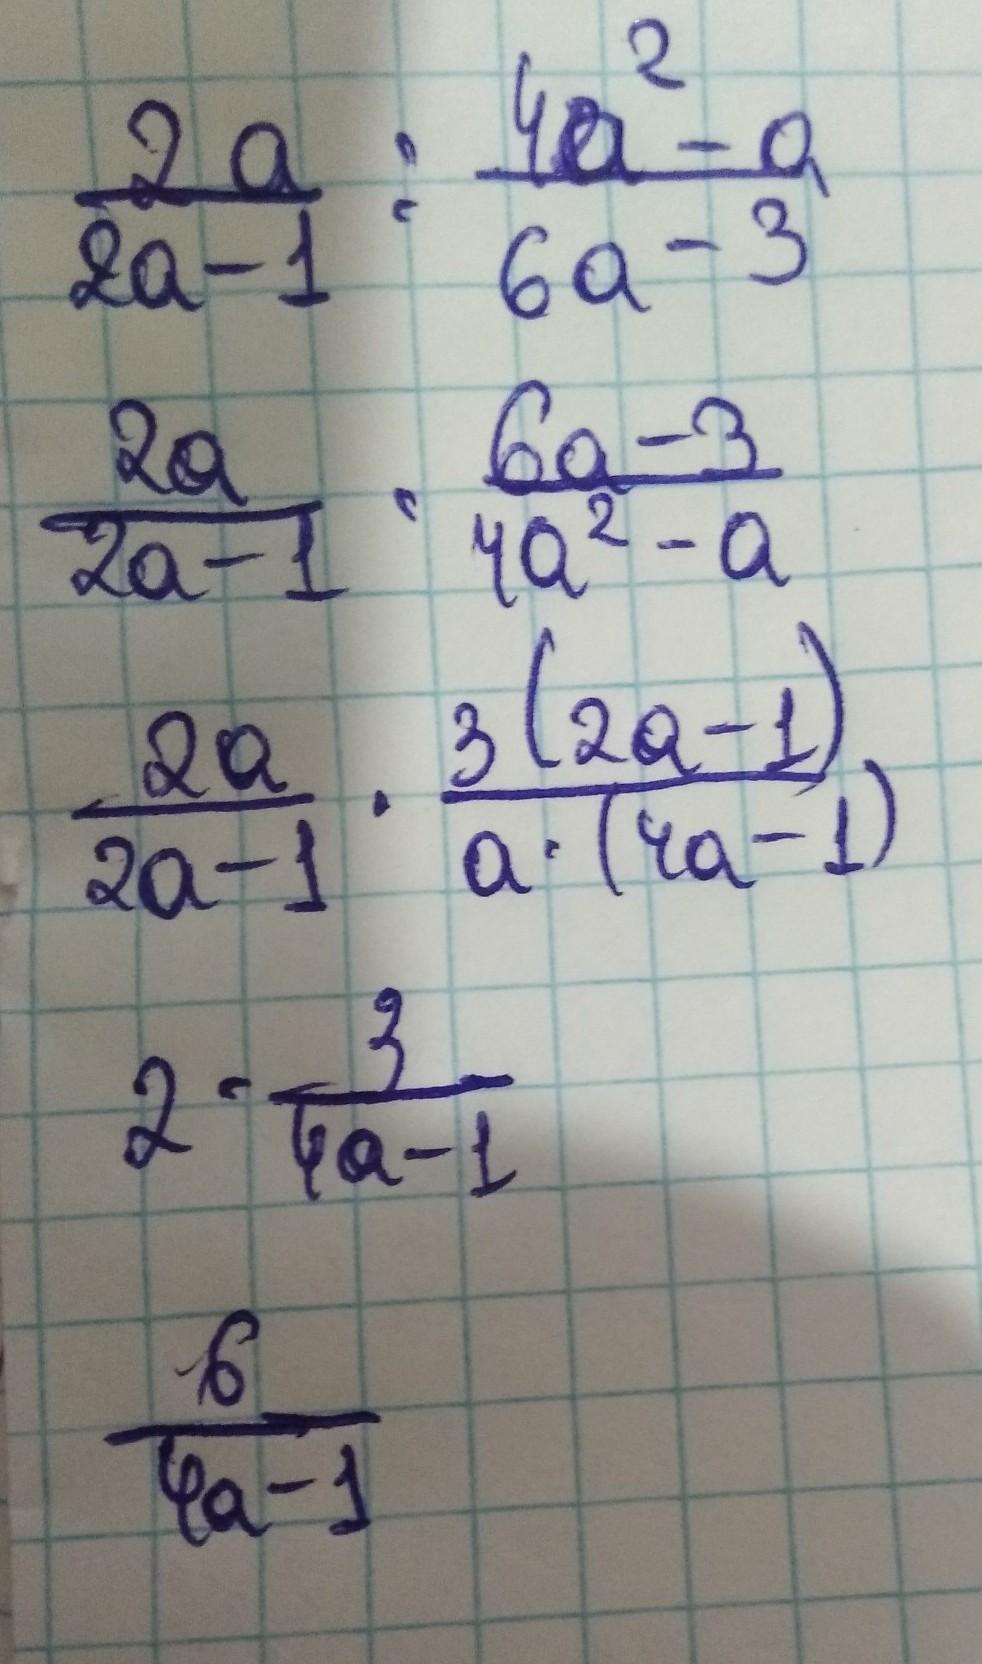 2a/(2a-1) : (4a²-a)/(6a-3)
2a/(2a-1) · (6a-3)/(4a²-a)
2a/(2a-1) · 3(2a-1)/(a·(4a-1))
2 · 3/(4a-1)
6/(4a-1)